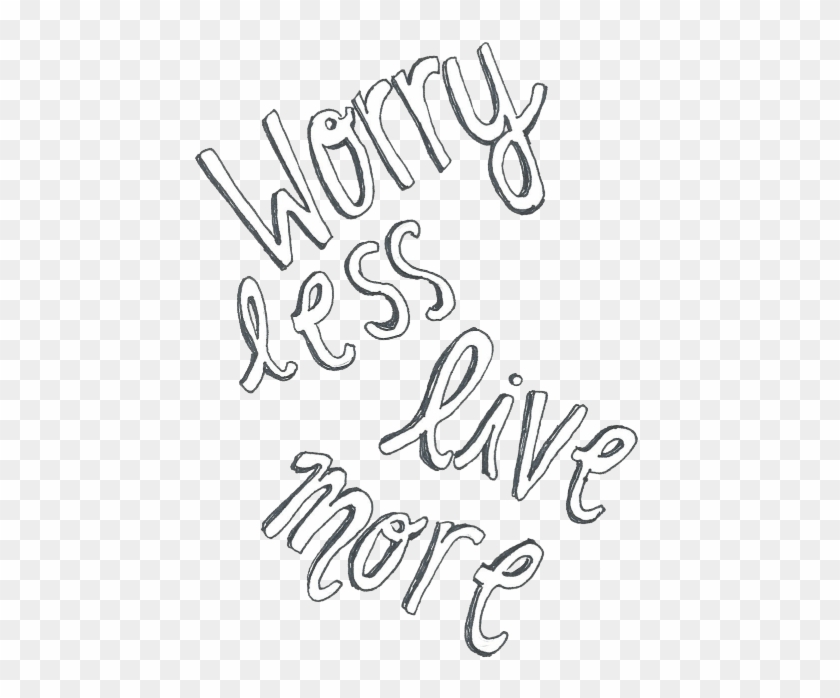 Worry
less
live
more